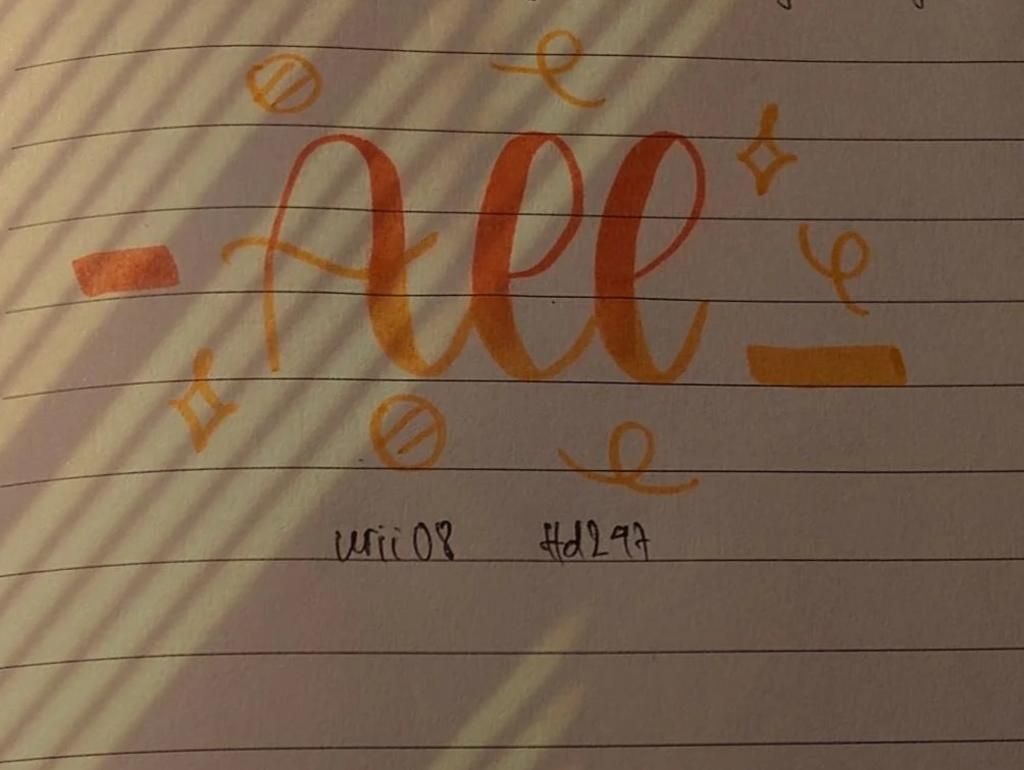 All
urii08 #d297